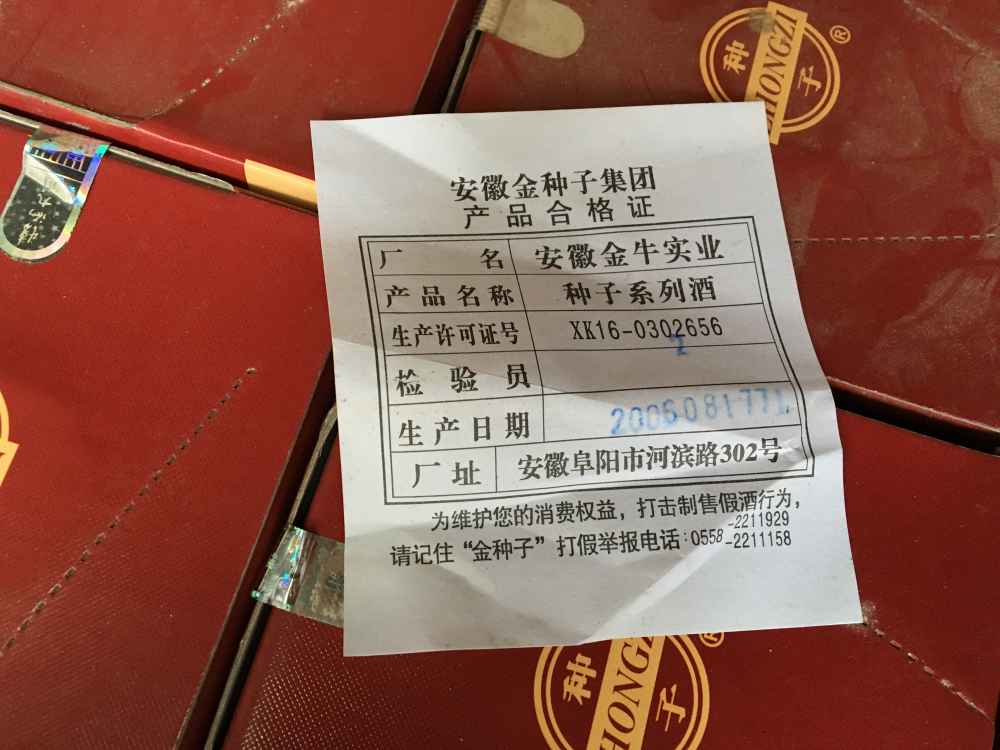 种 ZHONGZI 子 ®
安徽金种子集团
产品合格证
厂名 安徽金牛实业
产品名称 种子系列酒
生产许可证号 XK16-0302656
检验员 2
生产日期 2006081771
厂址 安徽阜阳市河滨路302号
为维护您的消费权益，打击制售假酒行为，
-2211929
请记住“金种子”打假举报电话：0558-2211158
种 ZHONGZI 子 ®